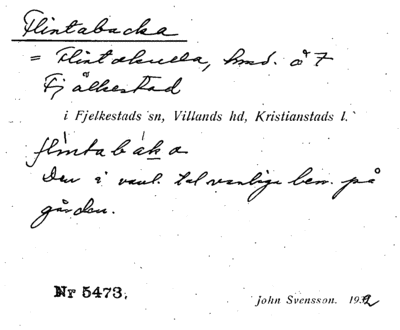 Flintabacka
= Flintakulla, hmd. å 7
Fjälkestad
i Fjelkestads sn, Villands hd, Kristianstads l.
flintabáka
Den i vanl. tal vanliga ben. på
gården.
Nr 5473.
john Svensson. 1932